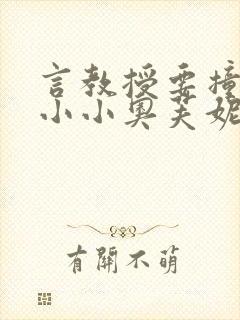 言教授要撞
小小奥芙妮
有開不萌